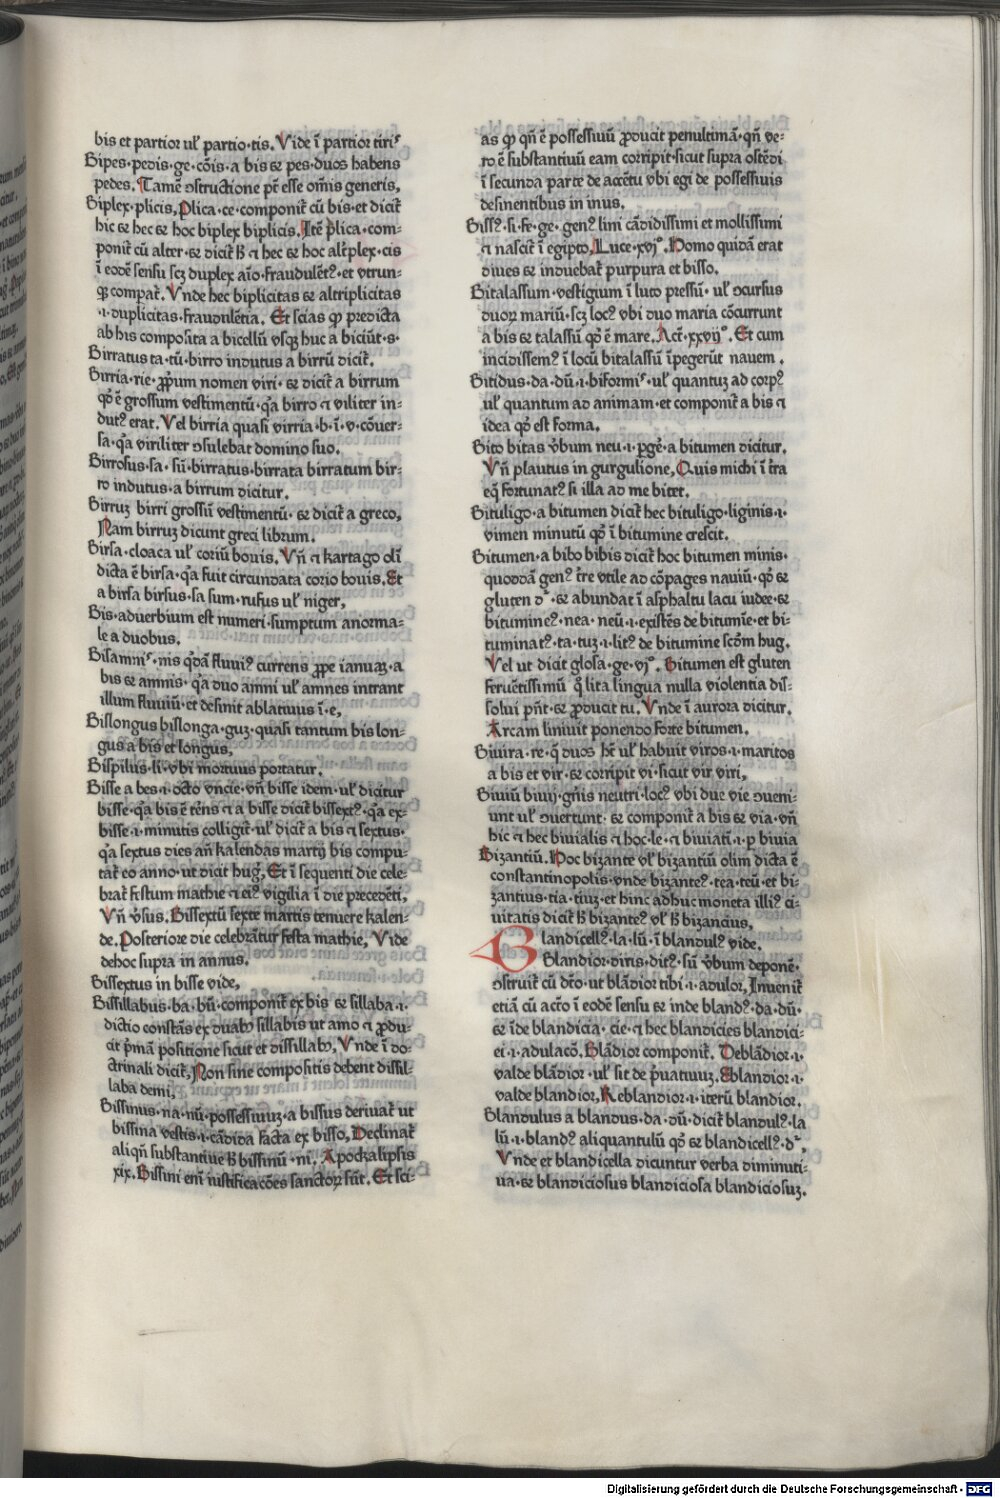 bis et partior ul̕ partio·tis. Vide ī partior tiriꝰ
Bipes·pedis·ge·cōis·a bis ⁊ pes·duos habens
pedes. Tamē ↄstructione pt̄ esse om̄is generis,
Biplex·plicis, Plica·ce·componit̄ cū bis·et dicit̄
hic ⁊ hec ⁊ hoc biplex biplicis. Itē plica·com-
ponit̄ cū alter·⁊ dicit̄ h̄ ⁊ hec ⁊ hoc alt̄plex·cis
ī eodē sensu scꝫ duplex aīo·fraudulētꝰ·et utrun-
qꝫ compat̄. Vnde hec biplicitas ⁊ altriplicitas
·i·duplicitas·fraudulētia. Et scias ꝙ predicta
ab his composita a bicellū vsqꝫ huc a biciūt·s·
Birratus ta·tū·birro indutus a birrū dicit̄.
Birria·rie·ꝓpium nomen viri·⁊ dicit̄ a birrum
qđ ē grossum vestimentū·qꝛa birro ⁊ viliter in-
dutꝰ erat. Vel birria quasi virria·b·ī·v·cōuer-
sa·qꝛa viriliter ↄsulebat domino suo.
Birrosus·sa·sū·birratus·birrata birratum bir-
ro indutus·a birrum dicitur.
Birruꝫ birri grossiū vestimentū·⁊ dicit̄ a greco,
Nam birruꝫ dicunt greci librum.
Birsa·cloaca ul̕ coriū bouis. Vn̄ ⁊ kartago oli
dicta ē birsa·qꝛa fuit circundata corio bouis. Et
a birsa birsus·sa sum·rufus ul̕ niger,
Bis·aduerbium est numeri·sumptum anorma-
le a duobus.
Bisamniꝰ·nis qđā fluuiꝰ currens ꝓpe ianuaꝫ·a
bis ⁊ amnis·qꝛa duo amni ul̕ amnes intrant
illum fluuiū·et desinit ablatiuus ī·e,
Bislongus bislonga·guꝫ·quasi tantum bis lon-
gus a bis et longus.
Bispilus·li·vbi mortuus portatur.
Bisse a bes·i·octo vncie·vn̄ bisse idem·ul̕ dicitur
bisse·qꝛa bis ē tēns ⁊ a bisse dicit̄ bissextꝰ·qꝛa ex
bisse·i·minutis colligit̄·ul̕ dicit̄ a bis ⁊ sextus·
qꝛa sextus dies an̄ kalendas martij bis compu-
tat̄ eo anno·ut dicit hug̕, Et ī sequenti die cele-
brat̄ festum mathie ⁊ eiꝰ vigilia ī die precedēti,
Vn̄ v̕sus. Bissextū sexte martis tenuere kalen-
de. Posteriore die celebrātur festa mathie, Vide
dehoc supra in annus.
Bissextus in bisse vide,
Bissillabus·ba·bū·componit̄ ex bis ⁊ sillaba·i·
dictio constās ex duabꝰ sillabis ut amo ⁊ ꝓdu-
cit pͥmā positione sicut et dissillabꝰ, Vnde ī do-
ctrinali dicit̄, Non sine compositis debent dissil-
laba demi,
Bissinus·na·nū·possessiuuꝫ·a bissus deriuat̄ ut
bissina vestis·i·cādida facta ex bisso, Declinat̄
aliqn̄ substantiue h̄ bissinū·ni. Apockalipsis
xix. Bissini em̄ iustificacōes sanctoꝝ sūt. Et sci-
as ꝙ qn̄ ē possessiuū ꝓducit penultimā·qn̄ ve-
ro ē substantiuū eam corripit·sicut supra ostēdi
ī secunda parte de accētu vbi egi de possessiuis
desinentibus in inus.
Bissꝰ·si·fe·ge·genꝰ lini cādidissimi et mollissimi
⁊ nascit̄ ī egipto, Luce·xvjͦ. Homo quidā erat
diues ⁊ induebat̄ purpura et bisso.
Bitalassum·vestigium ī luto pressū·ul̕ ↄcursus
duoꝝ mariū·scꝫ locꝰ vbi duo maria cōcurrunt
a bis ⁊ talassū qđ ē mare. Act̄·xxvijͦ. Et cum
incidissemꝰ ī locū bitalassū īpegerūt nauem.
Bitidus·da·dū·i·biformiꝰ·ul̕ quantuꝫ ad corpꝰ
ul̕ quantum ad animam·et componit̄ a bis ⁊
idea qđ est forma.
Bito bitas v̕bum neu·i·ꝑgeꝛ̄·a bitumen dicitur.
Vn̄ plautus in gurgulione, Quis michi ī t̄ra
eqꝫ fortunatꝰ si illa ad me bitet.
Bituligo·a bitumen dicit̄ hec bituligo·liginis·i·
vimen minutū qđ ī bitumine crescit.
Bitumen·a bibo bibis dicit̄ hoc bitumen minis·
quoddā genꝰ t̄re vtile ad cōpages nauiū·qđ ⁊
gluten dꝛ·⁊ abundat ī asphaltu lacu iudee·⁊
bitumineꝰ·nea·neū·i·existēs de bitumīe·et bi-
tuminatꝰ·ta·tuꝫ·i·litꝰ de bitumine scd̄m hug.
Vel ut dicit glosa·ge·vjͦ. Bitumen est gluten
feruētissimū q̄ lita lingua nulla violentia dis-
solui pn̄t·⁊ ꝓducit tu. Vnde ī aurora dicitur,
Arcam liniuit ponendo forte bitumen.
Biuira·re·q̄ duos hꝫ ul̕ habuit viros·i·maritos
a bis et vir·⁊ corripit vi·sicut vir viri,
Biuiū biuij·gn̄is neutri·locꝰ vbi due vie ↄueni-
unt ul̕ ↄuertunt·⁊ componit̄ a bis ⁊ via·vn̄
hic ⁊ hec biuialis ⁊ hoc·le·⁊ biuiati·i·p biuia
Bizantiū. Hoc bizante vl̕ bizantiū olim dicta ē
constantinopolis·vnde bizanteꝰ·tea·teū·et bi-
zantius·tia·tiuꝫ·et hinc adhuc moneta illiꝰ ci-
uitatis dicit̄ h̄ bizanteꝰ vl̕ h̄ bizancius,
Blandicellꝰ·la·lū·ī blandulꝰ vide.
Blandior·diris·ditꝰ·sū v̕bum deponē·
ↄstruit̄ cū dt̄o·ut blādior tibi·i·adulor, Inuenit̄
etiā cū acto ī eodē sensu ⁊ inde blandꝰ·da·dū·
⁊ īde blandicia·cie·⁊ hec blandicies blandici-
ei·i·adulacō. Blādior componit̄. Deblādior·i·
valde blādior·ul̕ sit de pͥuatiuuꝫ. Eblandior·i·
valde blandior, Reblandior·i·iterū blandior.
Blandulus a blandus·da·dū·dicit̄ blandulꝰ·la
lū·i·blandꝰ aliquantulū qđ ⁊ blandicellꝰ·dꝛ,
Vnde et blandicella dicuntur verba diminuti-
ua·⁊ blandiciosus blandiciosa blandiciosuꝫ.
Digitalisierung gefördert durch die Deutsche Forschungsgemeinschaft - DFG